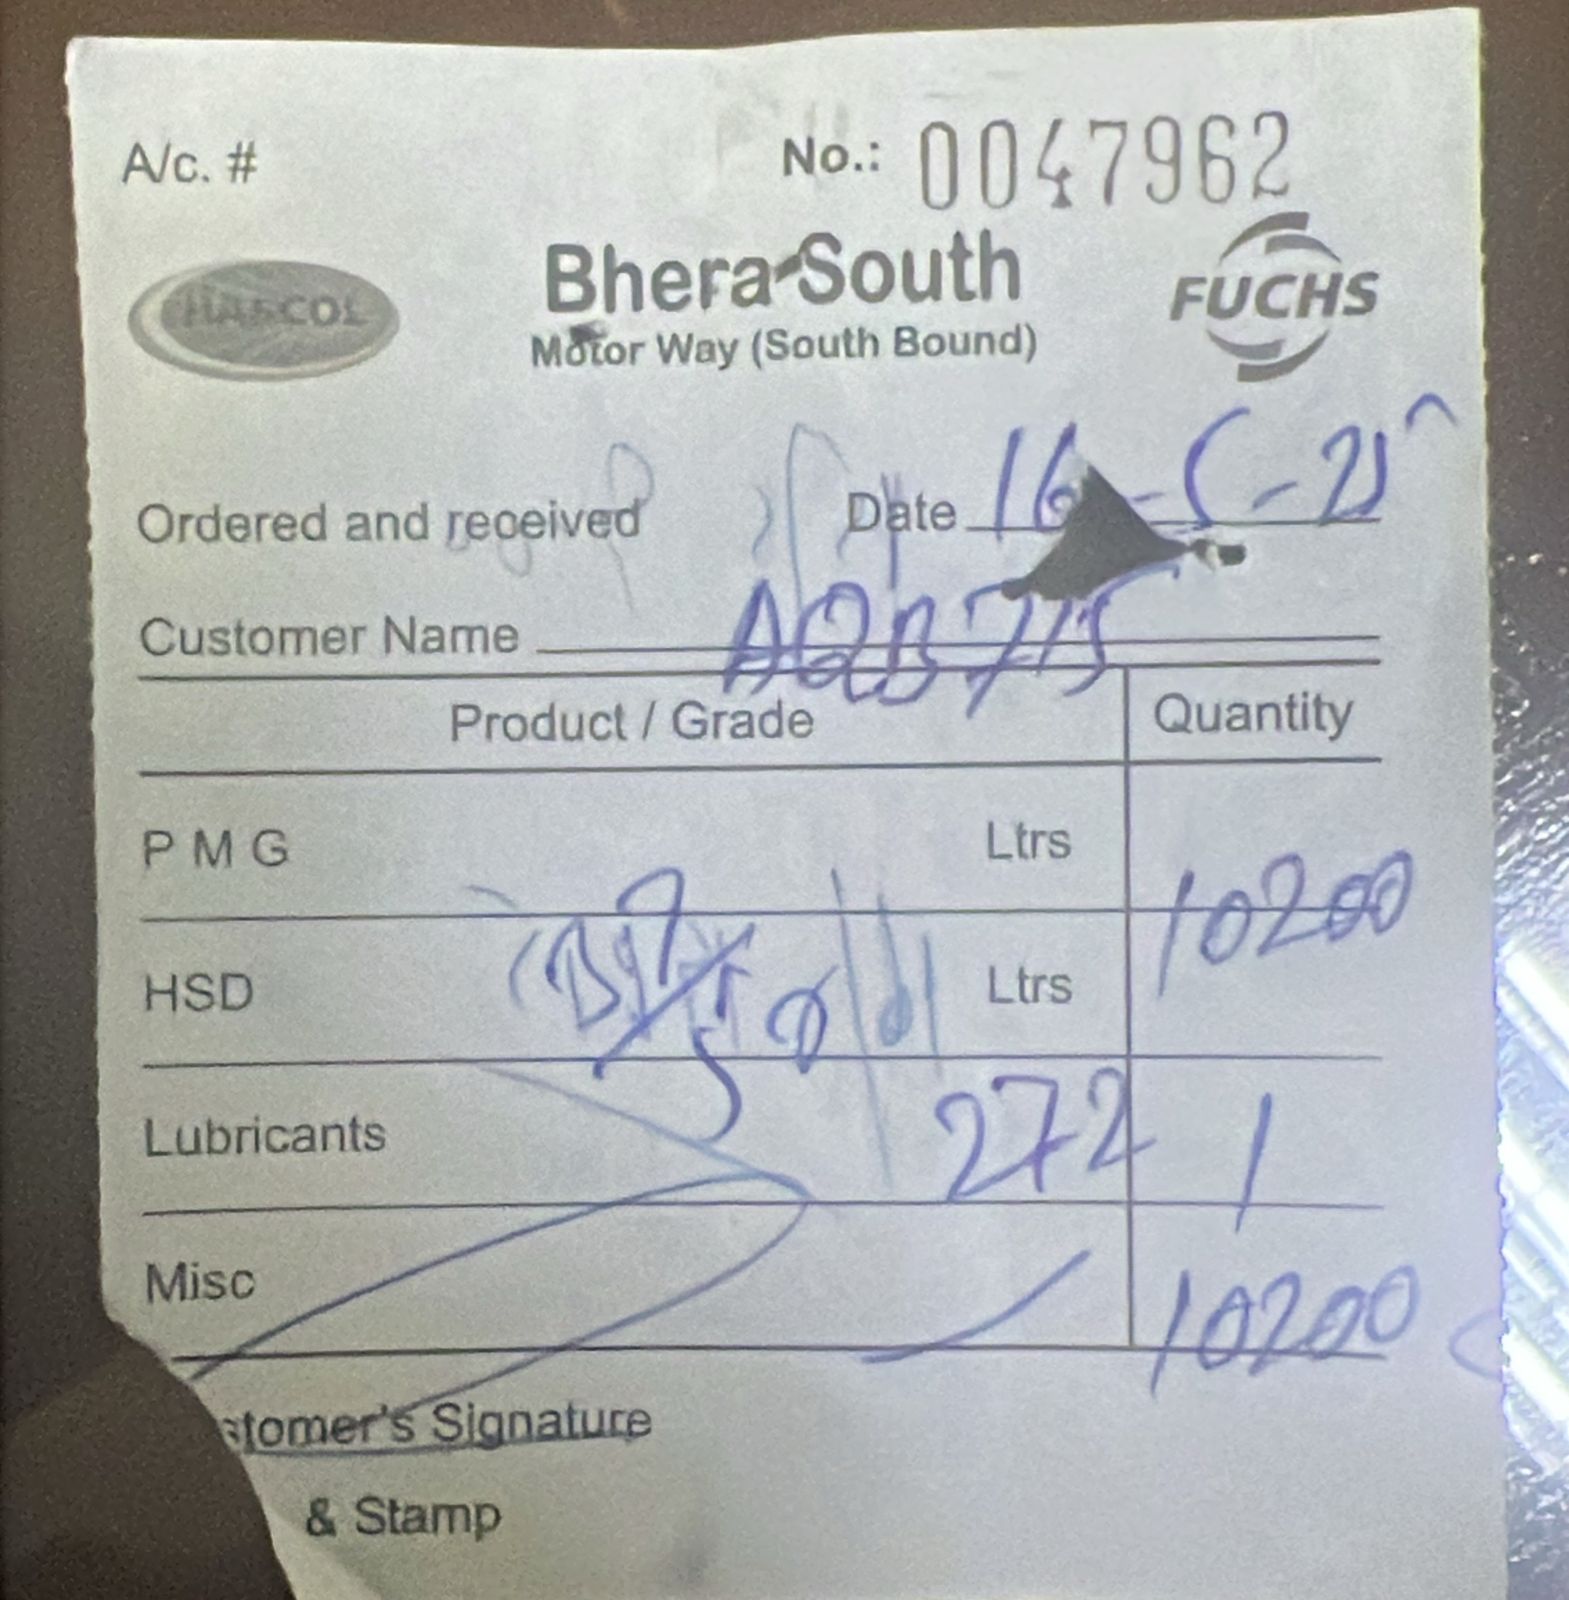 A/c. # No.: 0047962
HASCOL
Bhera South
Motor Way (South Bound)
FUCHS
Ordered and received Date 16-5-25
Customer Name AQB 715
Product / Grade Quantity
P M G Ltrs 10200
HSD Ltrs
Lubricants 272 1
Misc 10200
stomer's Signature
& Stamp